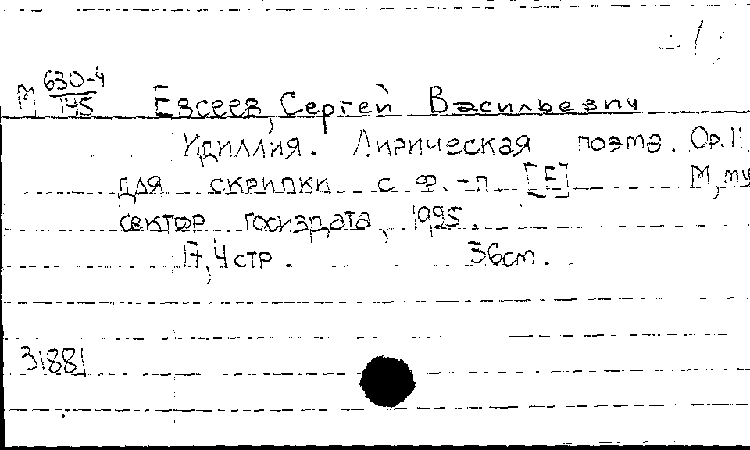 М 630-4/145 Евсеев, Сергей Васильевич
Идиллия. Лирическая поэма. Ор. 11,
для скрипки с ф.-п. [Е] М, му
сектор госиздата, 1925.
17, 4 стр. 36см.
31881